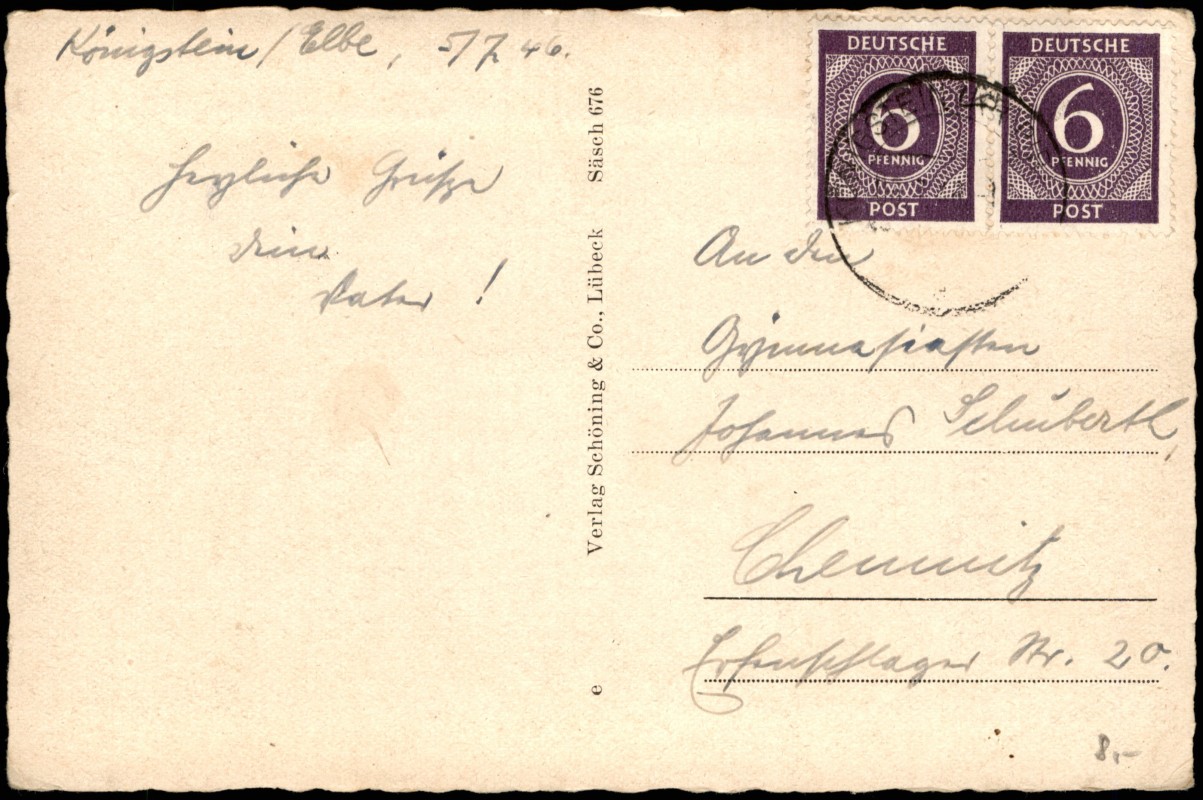 Königstein / Elbe, 5/7. 46.
Herzliche Grüße
dein
Vater!
Verlag Schöning & Co., Lübeck Säsch 676
e
DEUTSCHE
6
PFENNIG
POST
DEUTSCHE
6
PFENNIG
POST
An den
Gymnasiasten
Johannes Schuberth,
Chemnitz
Erfenschlager Str. 20.
8,-